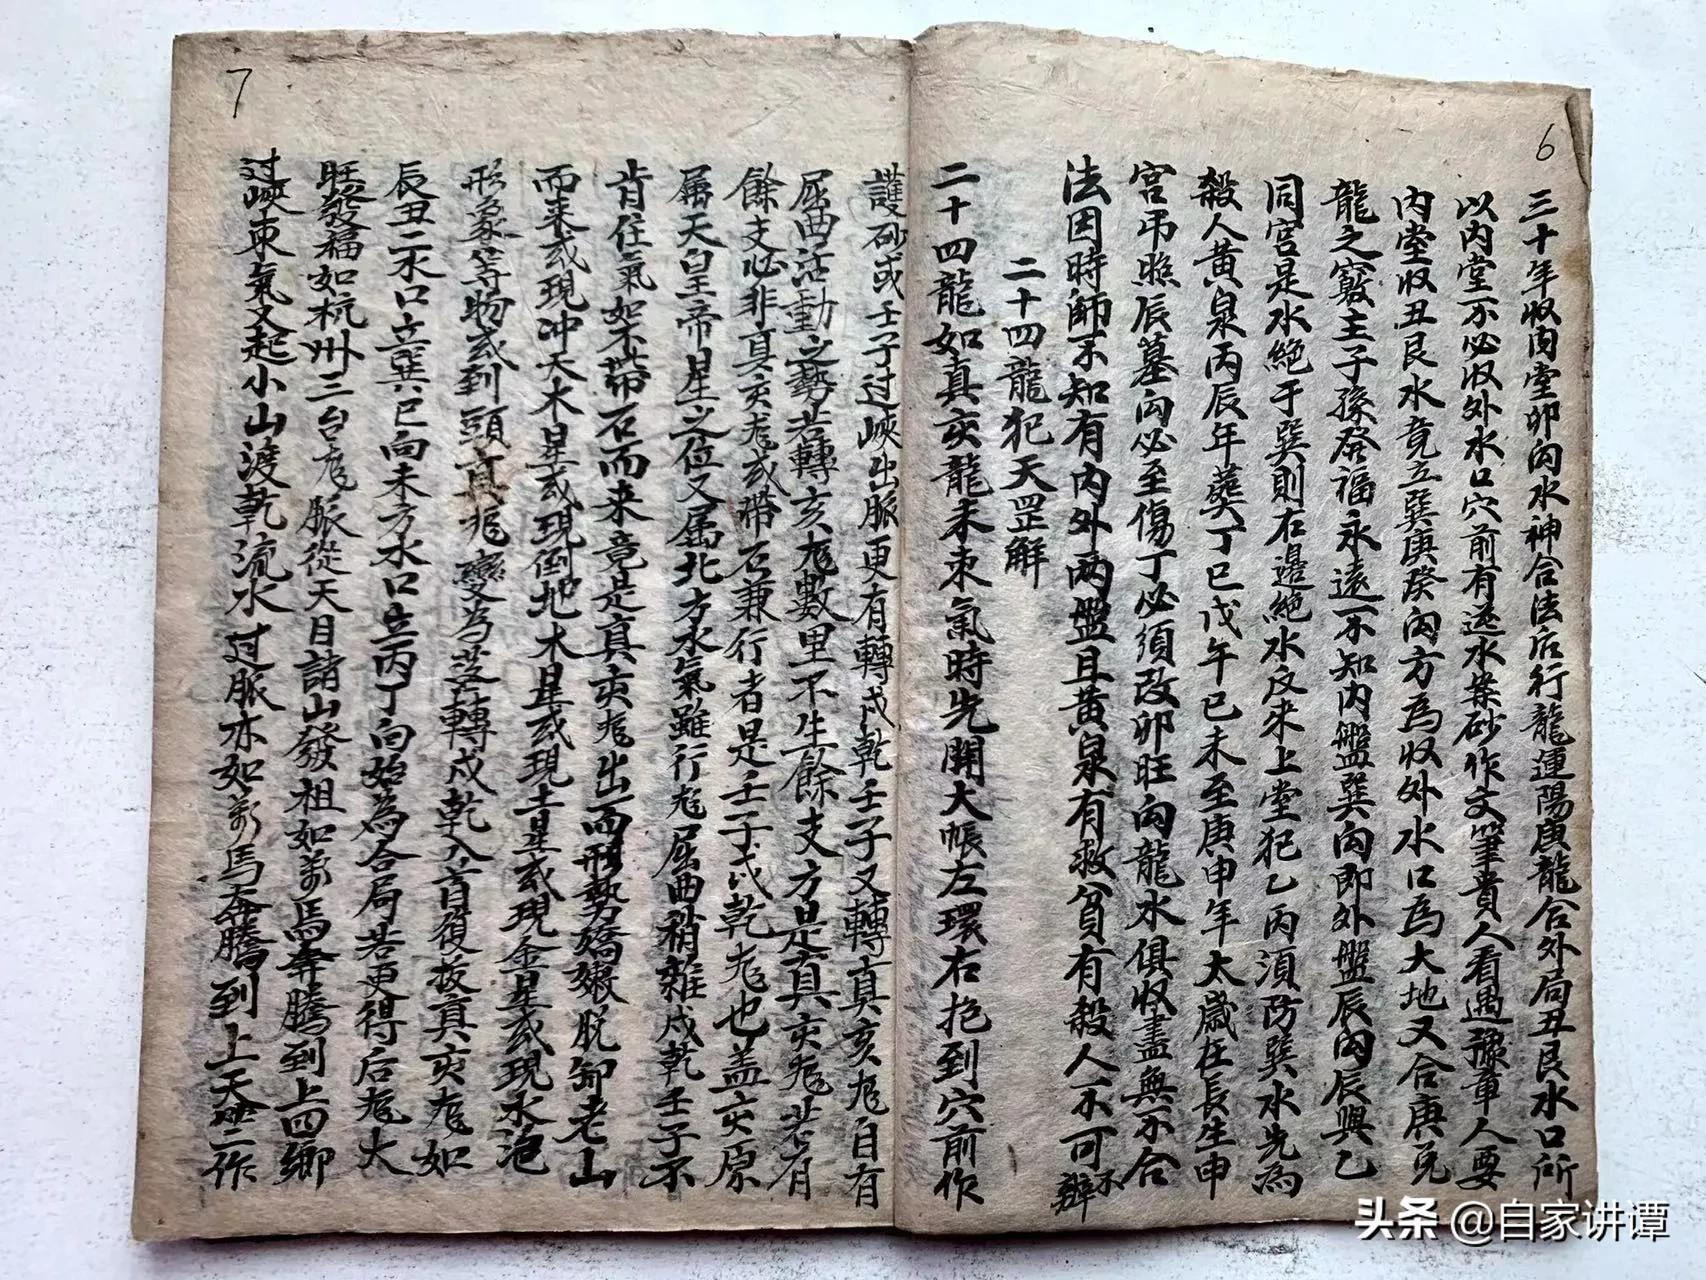 6
三十年收內堂卯丙水神合法后行龍運陽庚龍合外局丑艮水口所
以內堂不必收外水口穴前有送水案砂作文筆貴人看遇豫章人要
內堂收丑艮水竟立巽庚癸丙方為收外水口為大地又合庚兌
龍之竅主子孫發福永遠不知內盤巽向即外盤辰向辰與乙
同宮是水絕于巽則右邊絕水反來上堂犯乙丙須防巽水先為
殺人黃泉丙辰年葬丁巳戊午己未至庚申年太歲在長生申
宮弔照辰墓向必至傷丁必須改卯旺向龍水俱收盡無不合
法因時師不知有內外兩盤且黃泉有救貧有殺人不可不辨
二十四龍犯天罡解
二十四龍如真亥龍未束氣時先開大帳左環右抱到穴前作
7
護砂或壬子过峽出脈更有轉戌乾壬子又轉真亥龙自有
屈曲活動之勢若轉亥龙數里不生餘支方是真亥龙若有
餘支必非真亥龙或帶石兼行者是壬子戌乾龙也盖亥原
屬天皇帝星之位又屬北方水氣雖行龙屈曲稍雜戌乾壬子不
肯住氣如不帶石而来竟是真亥龙出而形勢嬌嫩脫卸老山
而来或現冲天木星或現倒地木星或現土星或現金星或現水泡
形象等物或到頭真龙變為芝轉戌乾入首復板真亥龙如
辰丑二水口立巽巳向未方水口立丙丁向始為合局若更得后龙大
旺發福如杭州三台龙脈從天目諸山發祖如萬馬奔騰到上四鄉
过峽束氣又起小山渡乾流水过脈亦如萬馬奔騰到上天竺二作
头条 @白家讲谭